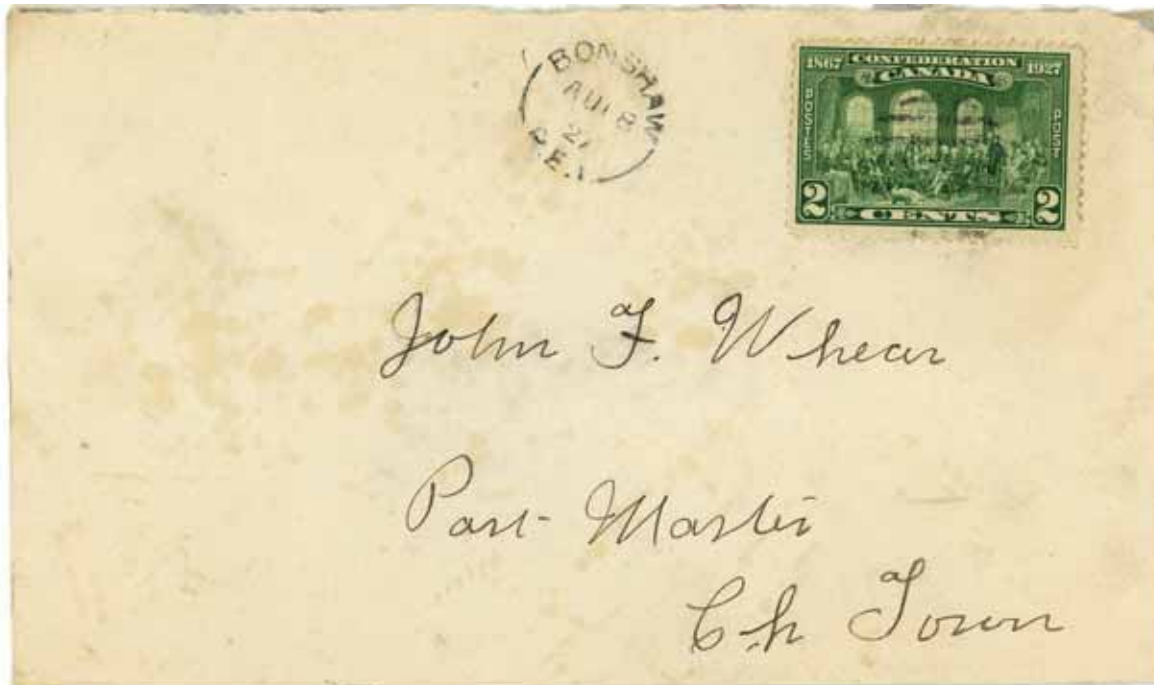 BONSHAW
AU 8
27
P.E.I
1867 CONFEDERATION 1927
CANADA
POSTES
POST
2 CENTS 2
John F. Whear
Post Master
Ch Town